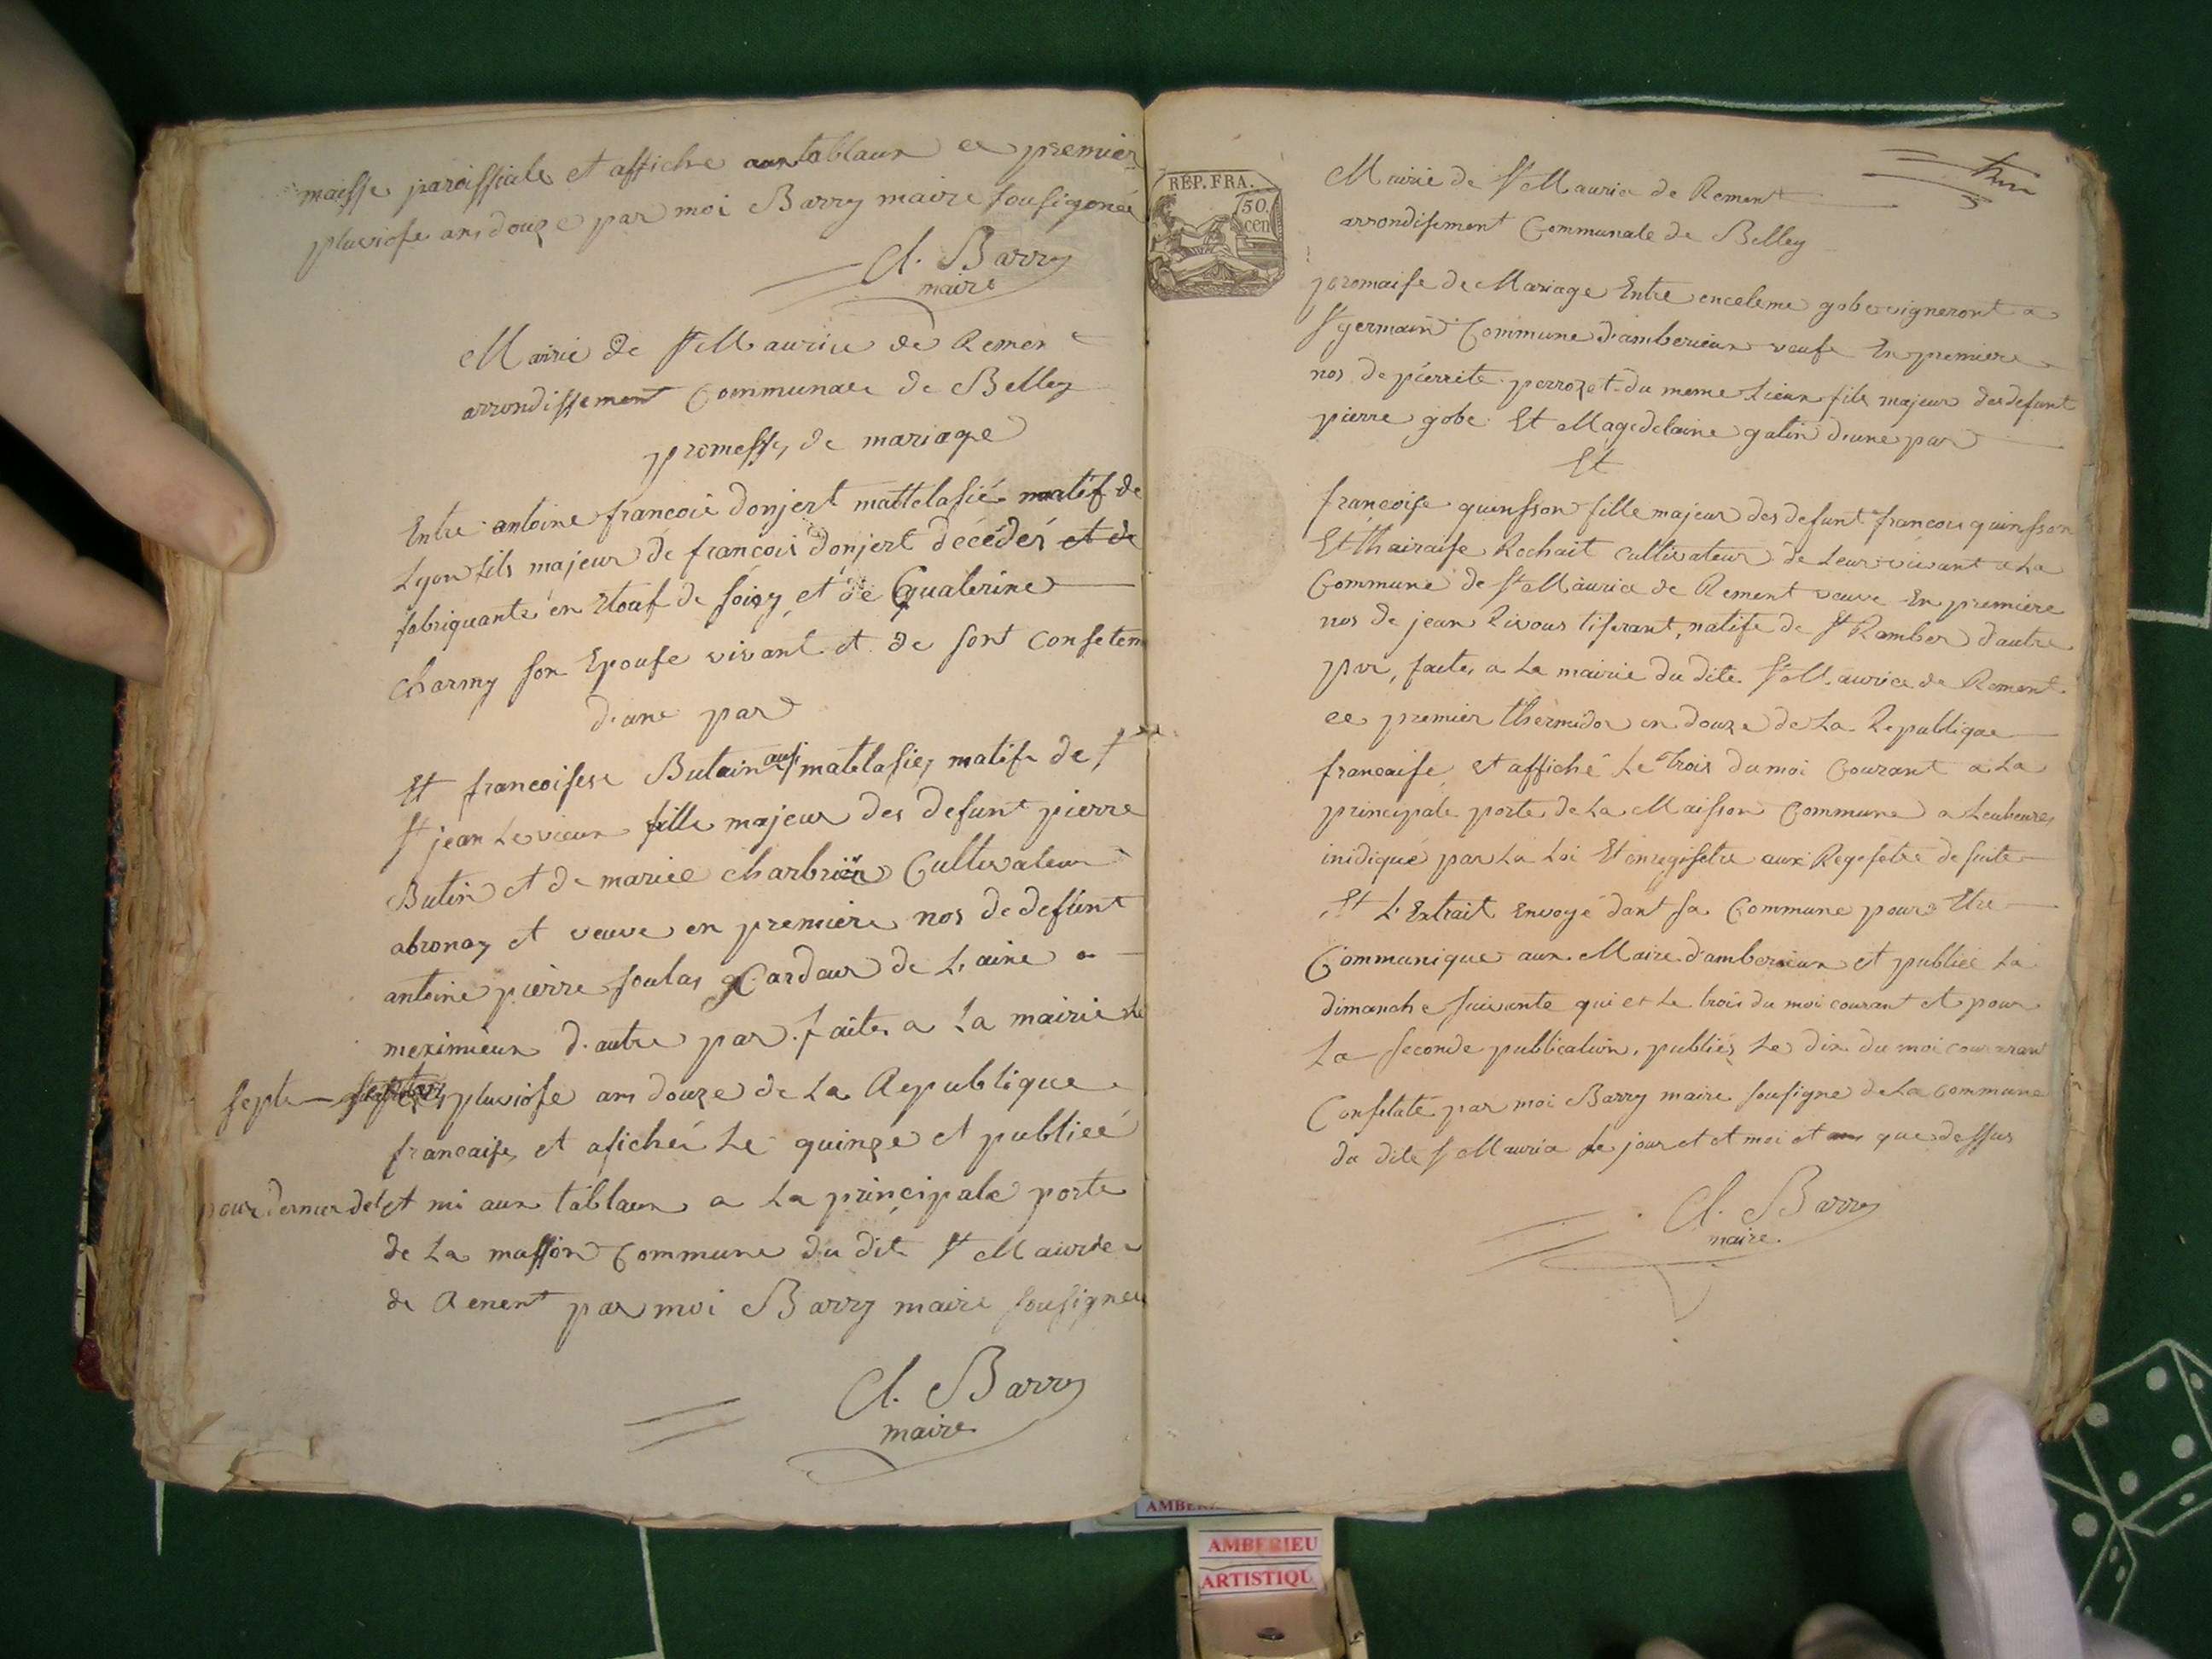 maisse paroissiale et affiche aux tablaux ce premier
pluviose ans douze par moi Barry maire sousignée
Cl. Barry
maire
Mairie de St Maurice de Remen
arrondissement Communale de Belley
promesse de mariage
Entre antoine francois donjert mattelasié natif de
Lyon fils majeur de francois donjert décédés et de
fabriquante en Etouf de soiey et de Cquaterine
charmy son Epouse vivant et de sont consetem
d'une par
Et francoisese Butain ausi matelasiey natife de St
St jean Le vieux fille majeur des defunt pierre
Butin et de mariee charbrien Cultivateur
abronay et veuve en premiere nos de defunt
antoine pierre soulas Cardeur de Laine a
meximieux d'autre par faites a La mairie Le
septe pluviose ans douze de La Republique
francaise et afichée Le quinze et publiée
pour dernier delet et mi aux tablaux a La principale porte
de La maison Commune du dit St Maurice
de Rement par moi Barry maire sousigneé
Cl. Barry
maire
REP. FRA.
50
cen
Mairie de St Maurice de Rement
arrondisement Communale de Belley
promaise de Mariage Entre enceleme gobe vigneront a
St germain Commune d'amberieux veufe En premiere
nos de pierrite perrozet du meme Lieux fils majeur des defunt
pierre gobe Et Magedelaine gatin d'une par
Et
francoise quinsson fille majeur des defunt francois quinsson
Et thairaise Rochait cultivateur de Leur vivant a La
Commune de St Maurice de Rement veuve En premiere
nos de jean Rivous tiserant, natife de St Ramber d'autre
par, faites a La mairie du dite St Maurice de Rement
ce premier thermidor an douze de La Republique
francaise et affiché Le trois du moi Courant a La
principale porte de La Maisson Commune a Leuheure
inidiqué par La Loi Et enregisetre aux Regesetre de suite
Et L'Extrait Envoyé dant sa Commune pour Etre
Communique aux Maire d'amberieux et publiée La
dimanche suivante qui et Le trois du moi courant et pour
La seconde publication, publiés Le dix du moi courrant
Consetaté par moi Barry maire sousigne de La Commune
du dite St Maurice Le jour et et moi et ans que dessus
Cl. Barry
maire.
AMBERIEU
ARTISTIQU